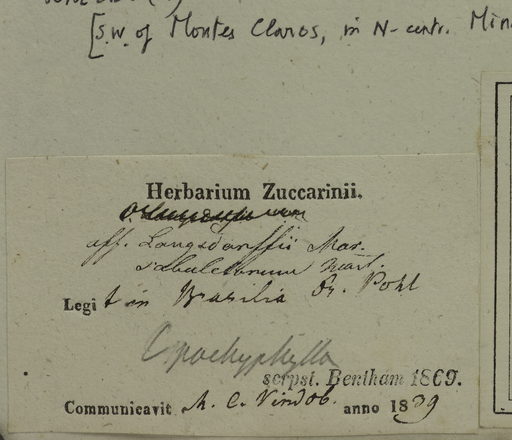 [S.W. of Montes Claros, in N-centr. Min
Herbarium Zuccarinii.
aff. Langsdorffii Mar.
sabuletorum Mart.
Legit in Brasilia Dr. Pohl
C. pachyphylla
scrpsi. Bentham 1869.
Communicavit M. C. Vindob. anno 1839